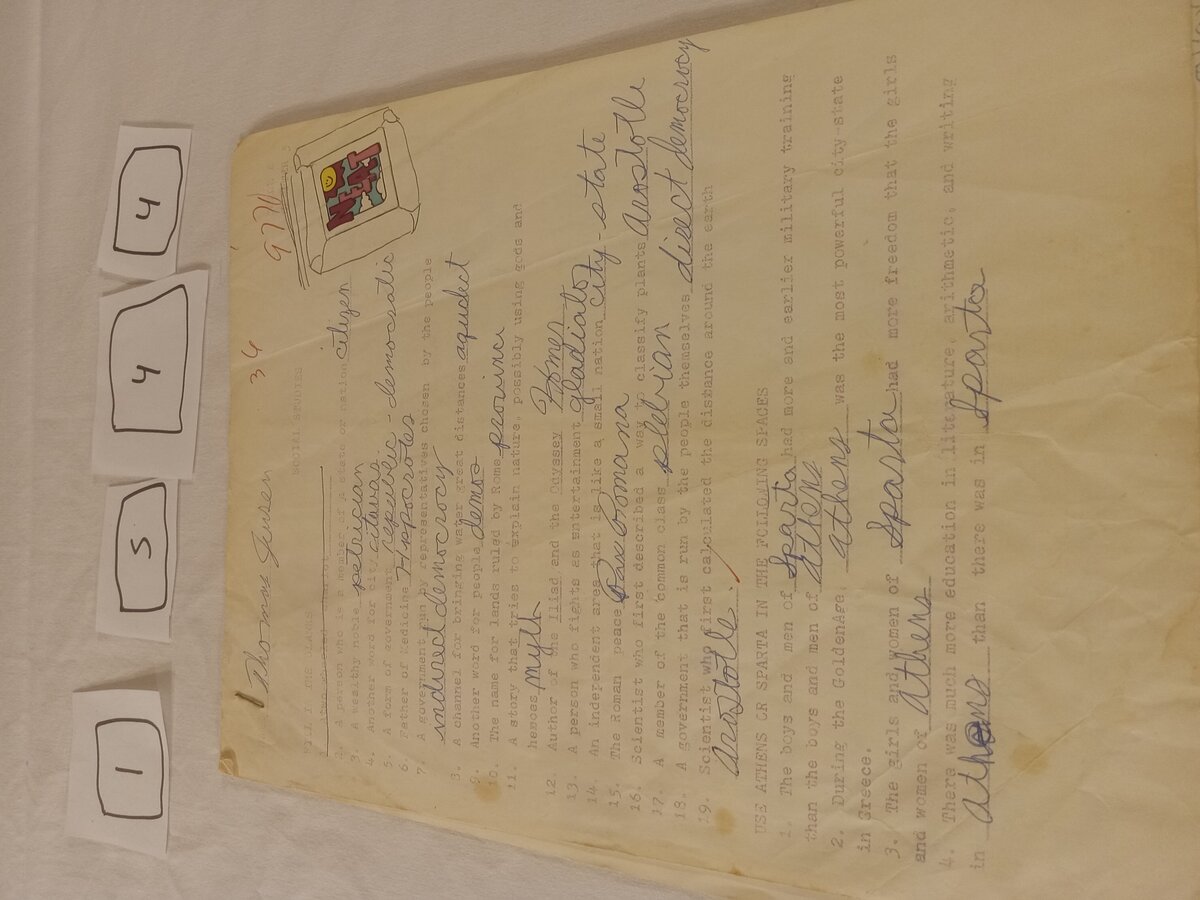 1 5 4 4
Thomas Jusen
36
97%
SOCIAL STUDIES
NEAT
FILL IN THE BLANKS
2. A person who is a member of a state or nation citizen
3. A wealthy noble petrician
4. Another word for city citavas
5. A form of government repeiblic - democratic
6. Father of Medicine Hippocrotes
7. A government run by representatives chosen by the people
indirect democrocy
8. A channel for bringing water great distances aqueduct
9. Another word for people demos
10. The name for lands ruled by Rome province
11. A story that tries to explain nature, possibly using gods and
heroes myth
12. Author of the Iliad and the Odyssey Homer
13. A person who fights as entertainment gladiator
14. An independent area that is like a small nation city-state
15. The Roman peace Pax Romana
16. Scientist who first described a way to classify plants aristotle
17. A member of the common class plebian
18. A government that is run by the people themselves direct democrocy
19. Scientist who first calculated the distance around the earth
aristotle.
USE ATHENS OR SPARTA IN THE FOLLOWING SPACES
1. The boys and men of Sparta had more and earlier military training
than the boys and men of athens
2. During the GoldenAge, athens was the most powerful city-state
in Greece.
3. The girls and women of Sparta had more freedom that the girls
and women of athens
4. There was much more education in literature, arithmetic, and writing
in athens than there was in Sparta